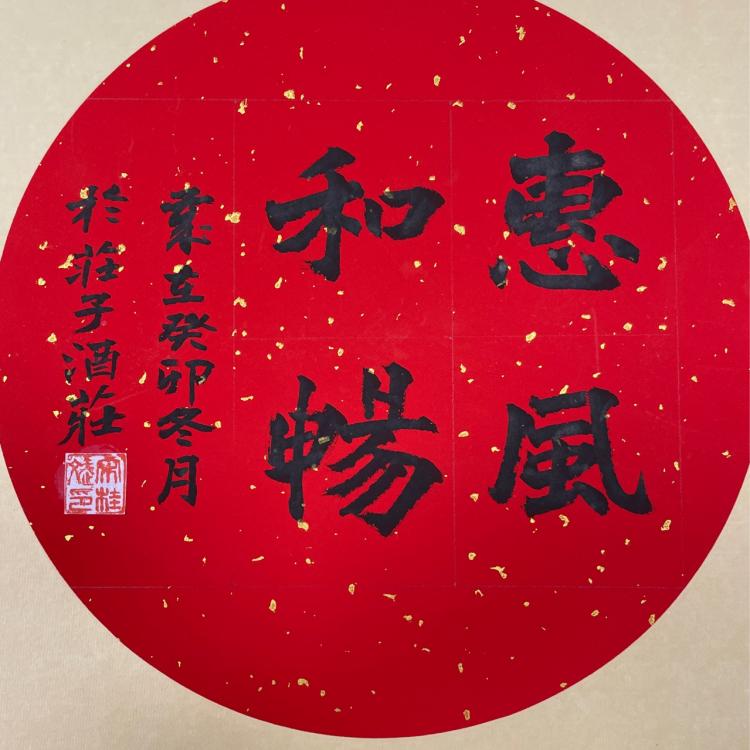 惠風
和暢
癸卯冬月
於莊子酒莊